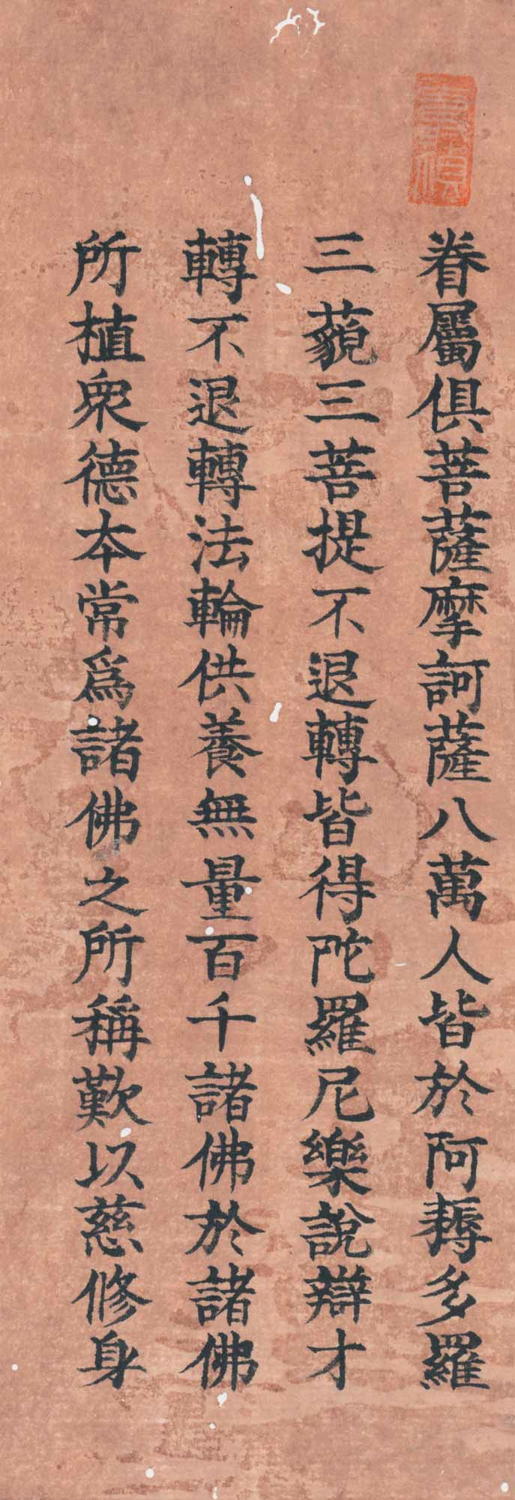 眷屬俱菩薩摩訶薩八萬人皆於阿耨多羅
三藐三菩提不退轉皆得陀羅尼樂說辯才
轉不退轉法輪供養無量百千諸佛於諸佛
所植衆德本常爲諸佛之所稱歎以慈修身